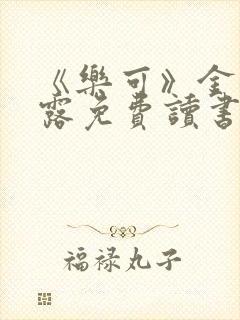 《樂可》金
露免費讀書
福禄丸子